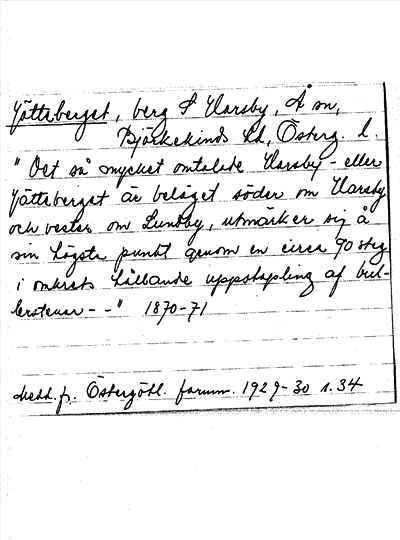 Jätteberget, berg S Marsby, Å sn,
Björkekinds hd, Österg. l.
"Det så mycket omtalade Marsby- eller
Jätteberget är beläget söder om Marsby
och vester om Lundby, utmärker sig å
sin högsta punkt genom en circa 90 steg
i omkrets hållande uppstapling af bul-
lerstenar--" 1870-71
Medd. fr. Östergötl. fornm. 1929-30 s. 34